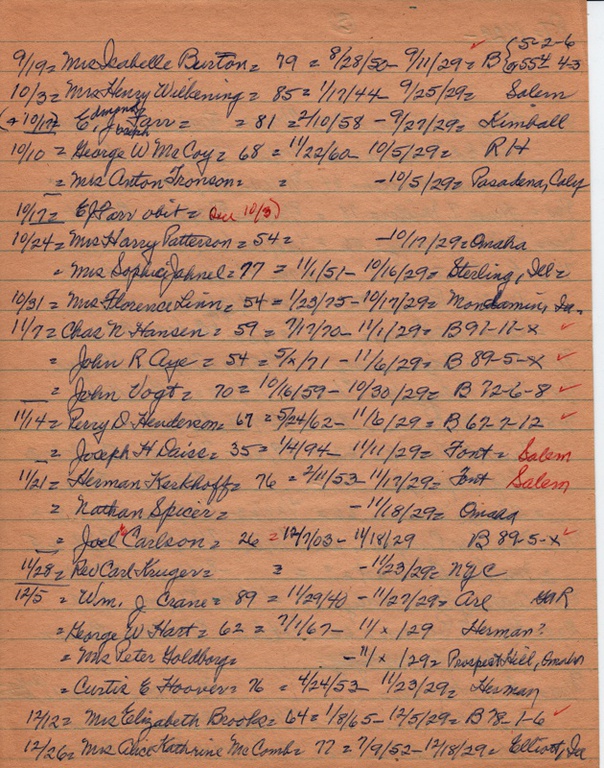 9/19 = Mrs Isabelle Burton = 79 = 8/28/50 - 9/11/29 = B {5-2-6 or 554 4-3
10/3 = Mrs Henry Wiebening = 85 = 1/17/44 - 9/25/29 = Salem
(+ 10/17) E, Edmund Joseph Farr = = 81 = 2/10/58 - 9/27/29 = Kimball
10/10 = George W McCoy = 68 = 11/22/60 - 10/5/29 = R H
= Mrs Anton Tronson = = - 10/5/29 = Pasadena, Caly
10/17 = E J Farr obit = (see 10/3)
10/24 = Mrs Harry Patterson = 54 = - 10/17/29 = Omaha
= Mrs Sophie Jahnel = 77 = 11/1/51 - 10/16/29 = Sterling, Ill =
10/31 = Mrs Florence Linn = 54 = 1/23/75 - 10/17/29 = Mondamin, Ia.
11/7 = Chas N Hansen = 59 = 7/17/70 - 11/1/29 = B 91-11-x ✓
= John R Aye = 54 = 5/x/71 - 11/6/29 = B 89-5-x ✓
= John Vogt = 70 = 10/16/59 - 10/30/29 = B 72-6-8 ✓
11/14 = Perry D Henderson = 67 = 5/24/62 - 11/6/29 = B 62-2-12 ✓
= Joseph H Daiss = 35 = 1/4/94 - 11/11/29 = Font = Salem
11/21 = Herman Kerkhoff = 76 = 2/11/53 - 11/17/29 = Font Salem
= Nathan Spicer = - 11/18/29 = Omaha
= Joel Carlson = 26 = 12/7/03 - 11/18/29 B 89-5-x ✓
11/28 = Rev Carl Kruger = = - 11/23/29 = NYC
12/5 = Wm. J Crane = 89 = 11/29/40 - 11/27/29 = Arl GAR
= George W Hart = 62 = 7/1/67 - 11/x/29 Herman?
= Mrs Peter Goldborg = - 11/x/29 = Prospect Hill, Omaha
= Curtis E Hoover = 76 = 4/24/53 - 11/23/29 = Herman
12/12 = Mrs Elizabeth Brooks = 64 = 1/8/65 - 12/5/29 = B 78-1-6 ✓
12/26 = Mrs Alice Kathrine McComb = 77 = 7/9/52 - 12/18/29 = Elliott, Ia